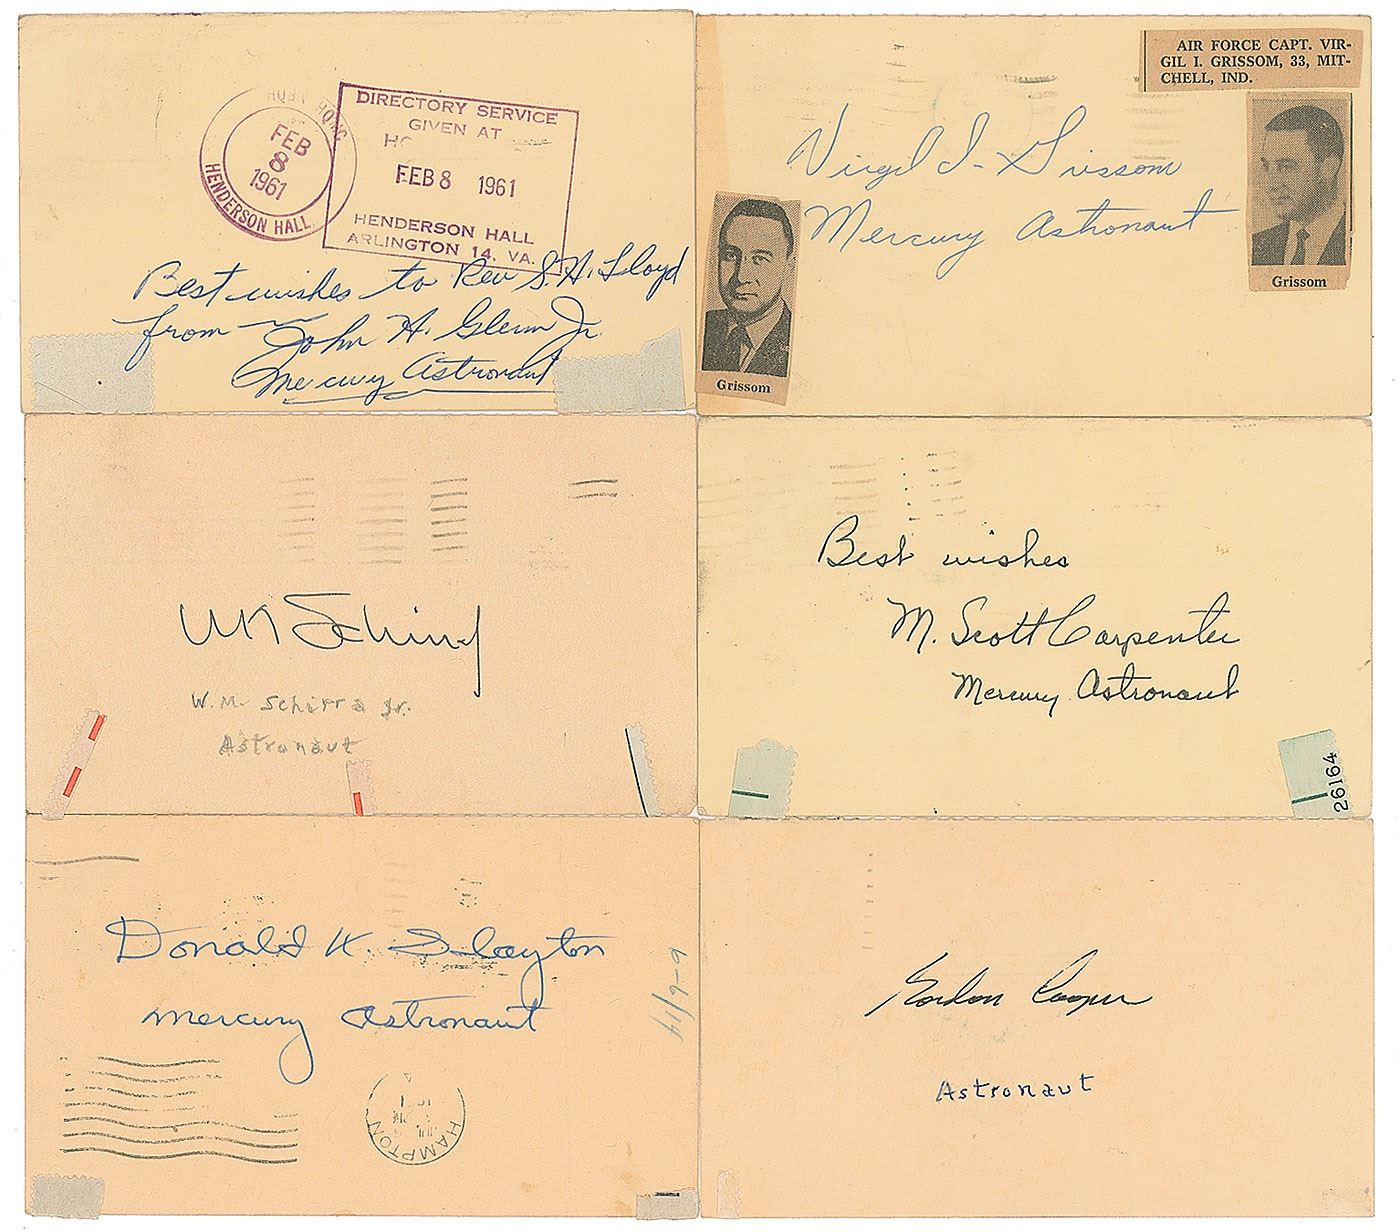 HENDERSON HALL
FEB
8
1961
DIRECTORY SERVICE
GIVEN AT
FEB 8 1961
HENDERSON HALL
ARLINGTON 14, VA.
Best wishes to Rev S. H. Lloyd
from
John H. Glenn Jr.
Mercury Astronaut
AIR FORCE CAPT. VIR-
GIL I. GRISSOM, 33, MIT-
CHELL, IND.
Virgil I. Grissom
Mercury Astronaut
Grissom
Grissom
W. M. Schirra Jr.
Astronaut
Best wishes
M. Scott Carpenter
Mercury Astronaut
26164
Donald K. Slayton
Mercury Astronaut
HAMPTON
Gordon Cooper
Astronaut